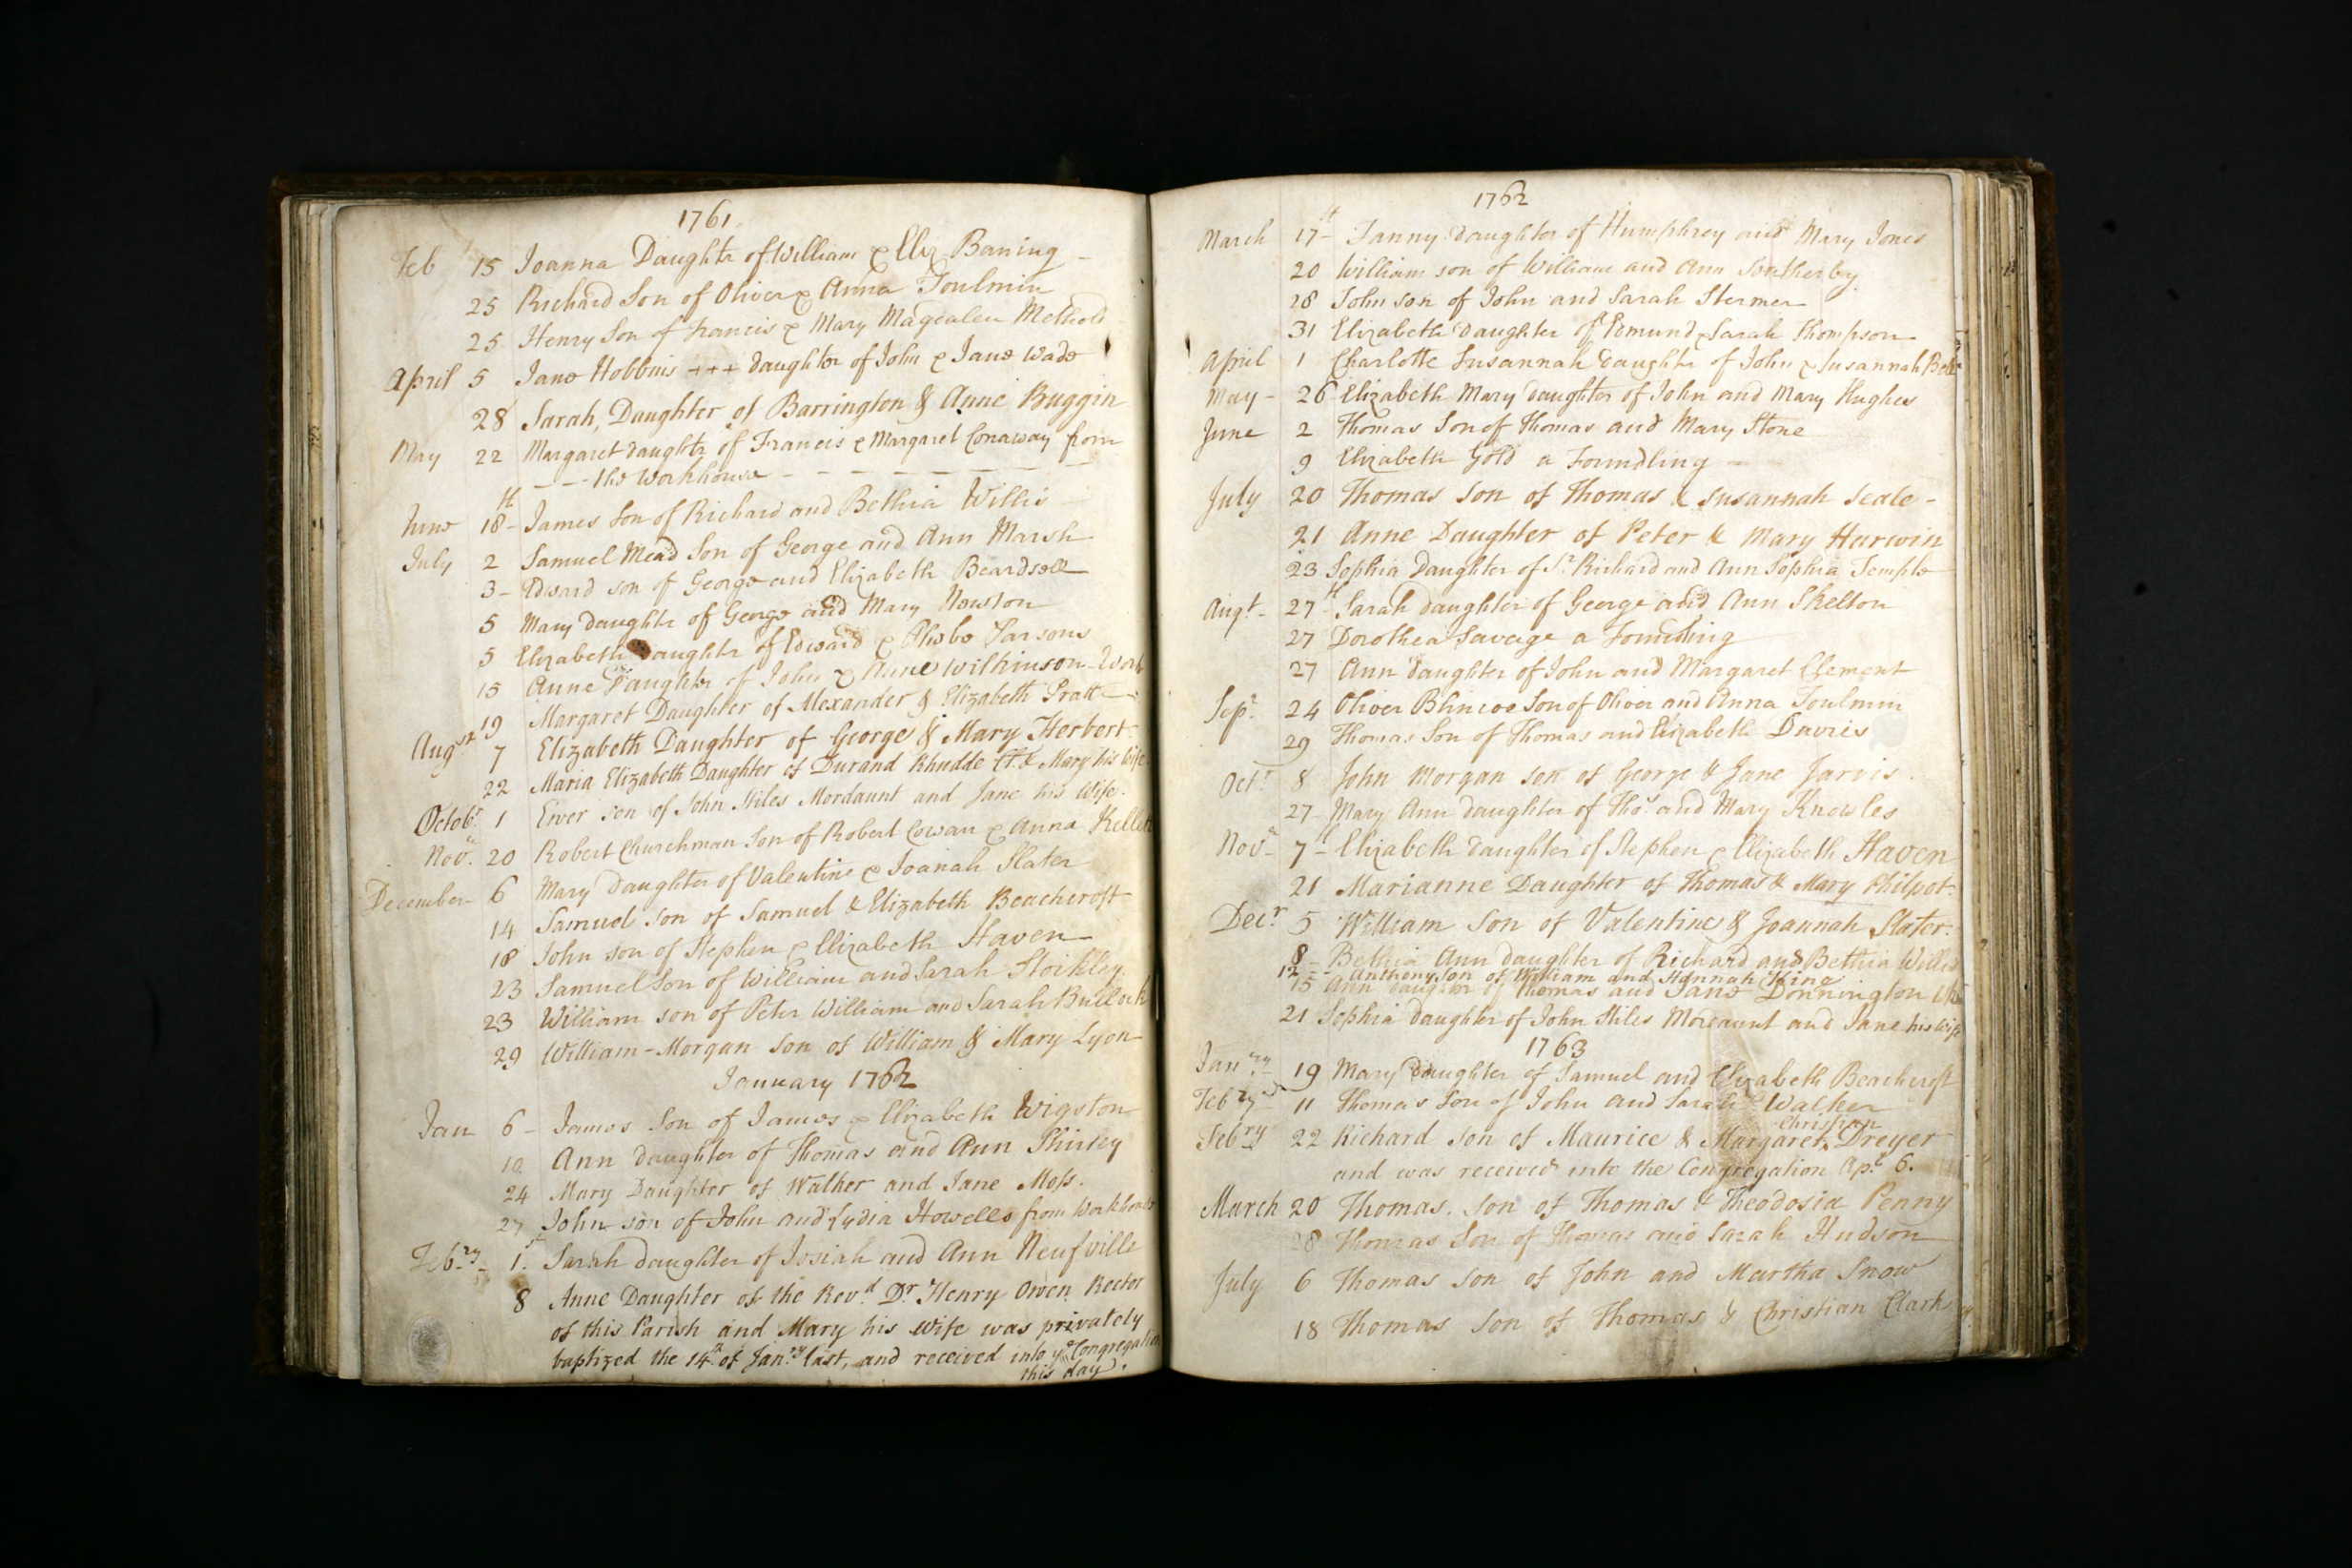 1761
Feb 15 Joanna Daughtr of William & Eliz Baning
25 Richard Son of Oliver & Anna Toulmin
25 Henry Son of francis & Mary Magdalen Methold
April 5 Jane Hobbins +++ daughter of John & Jane Wade
28 Sarah, Daughter of Barrington & Anne Buggin
May 22 Margaret daughtr of Francis & Margaret Conaway from
the Workhouse
June 18th James Son of Richard and Bethia Willis
July 2 Samuel Mead Son of George and Ann Marsh
3 Edward son of George and Elizabeth Beardsell
5 Mary daughtr of George and Mary Newton
5 Elizabeth Daughtr of Edward & Phebe Parsons
15 Anne Daughter of John & Anne Wilkinson Work
19 Margaret Daughter of Alexander & Elizabeth Pratt
Augst 7 Elizabeth Daughter of George & Mary Herbert
22 Maria Elizabeth Daughter of Durand Rhudde & Mary his Wife
Octobr 1 son of John Stiles Mordaunt and Jane his Wife.
Novr. 20 Robert Churchman Son of Robert Cowan & Anna Kellett
December 6 Mary Daughter of Valentine & Joanah Slater
14 Samuel Son of Samuel & Elizabeth Beachcroft
18 John son of Stephen & Elizabeth Haven
23 Samuel Son of William and Sarah Stoikley
23 William son of Peter William and Sarah Bullock
29 William-Morgan Son of William & Mary Lyon
January 1762
Jan 6 James Son of James & Elizabeth Wigston
10 Ann daughter of Thomas and Ann Shirley
24 Mary Daughter of Walker and Jane Moss.
27 John son of John and Lydia Howells from Workhouse
Febry 1st Sarah daughter of Josiah and Ann Neufville
8 Anne Daughter of the Revd. Dr. Henry Owen Rector
of this Parish and Mary his wife was privately
baptized the 14th of Janry last, and received into ye Congregation
this day.
1762
March 17th Fanny daughter of Humphrey and Mary Jones
20 William son of William and Ann Sotherby
28 John son of John and Sarah Stermer
31 Elizabeth Daughter of Edmund & Sarah Thompson
April 1 Charlotte Susannah Daughtr of John & Susannah
May 26 Elizabeth Mary daughter of John and Mary Hughes
June 2 Thomas Son of Thomas and Mary Stone
9 Elizabeth Gold a Foundling
July 20 Thomas Son of Thomas & Susannah Scale
21 Anne Daughter of Peter & Mary Harwin
23 Sophia Daughter of Sr Richard and Ann Sophia Temple
Augt 27th Sarah daughter of George and Ann Skelton
27 Dorothea Savage a Foundling
27 Ann daughter of John and Margaret Clement
Sepr. 24 Oliver Blincoe Son of Oliver and Anna Toulmin
29 Thomas Son of Thomas and Elizabeth Davies
Octr 8 John Morgan son of George & Jane Jarvis
27 Mary Ann daughter of Thos and Mary Knowles
Novr 7th Elizabeth daughter of Stephen & Elizabeth Haven
21 Marianne Daughter of Thomas & Mary Philpot
Decr. 5 William Son of Valentine & Joannah Slater
8 Bethia Ann daughter of Richard and Bethia Willis
12 Anthony, son of William and Hannah Kine
15 Ann daughter of Thomas and Jane Donnington
21 Sophia daughter of John Stiles Mordaunt and Jane his Wife
1763
Janry 19 Mary Daughter of Samuel and Elizabeth Beachcroft
Febry 11 Thomas Son of John and Sarah Walker
Christian
Febry 22 Richard Son of Maurice & Margaret Dreyer
and was received into the Congregation Apl 6.
March 20 Thomas. son of Thomas & Theodosia Penny
28 Thomas Son of Thomas and Sarah Hudson
July 6 Thomas Son of John and Martha Snow
18 Thomas Son of Thomas & Christian Clark